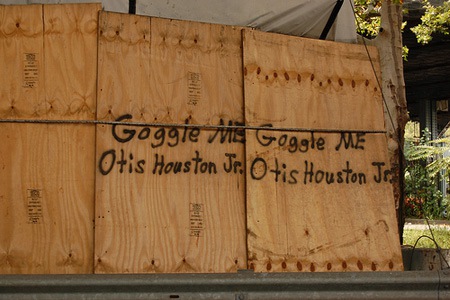 Goggle ME Goggle ME
Otis Houston Jr. Otis Houston Jr.